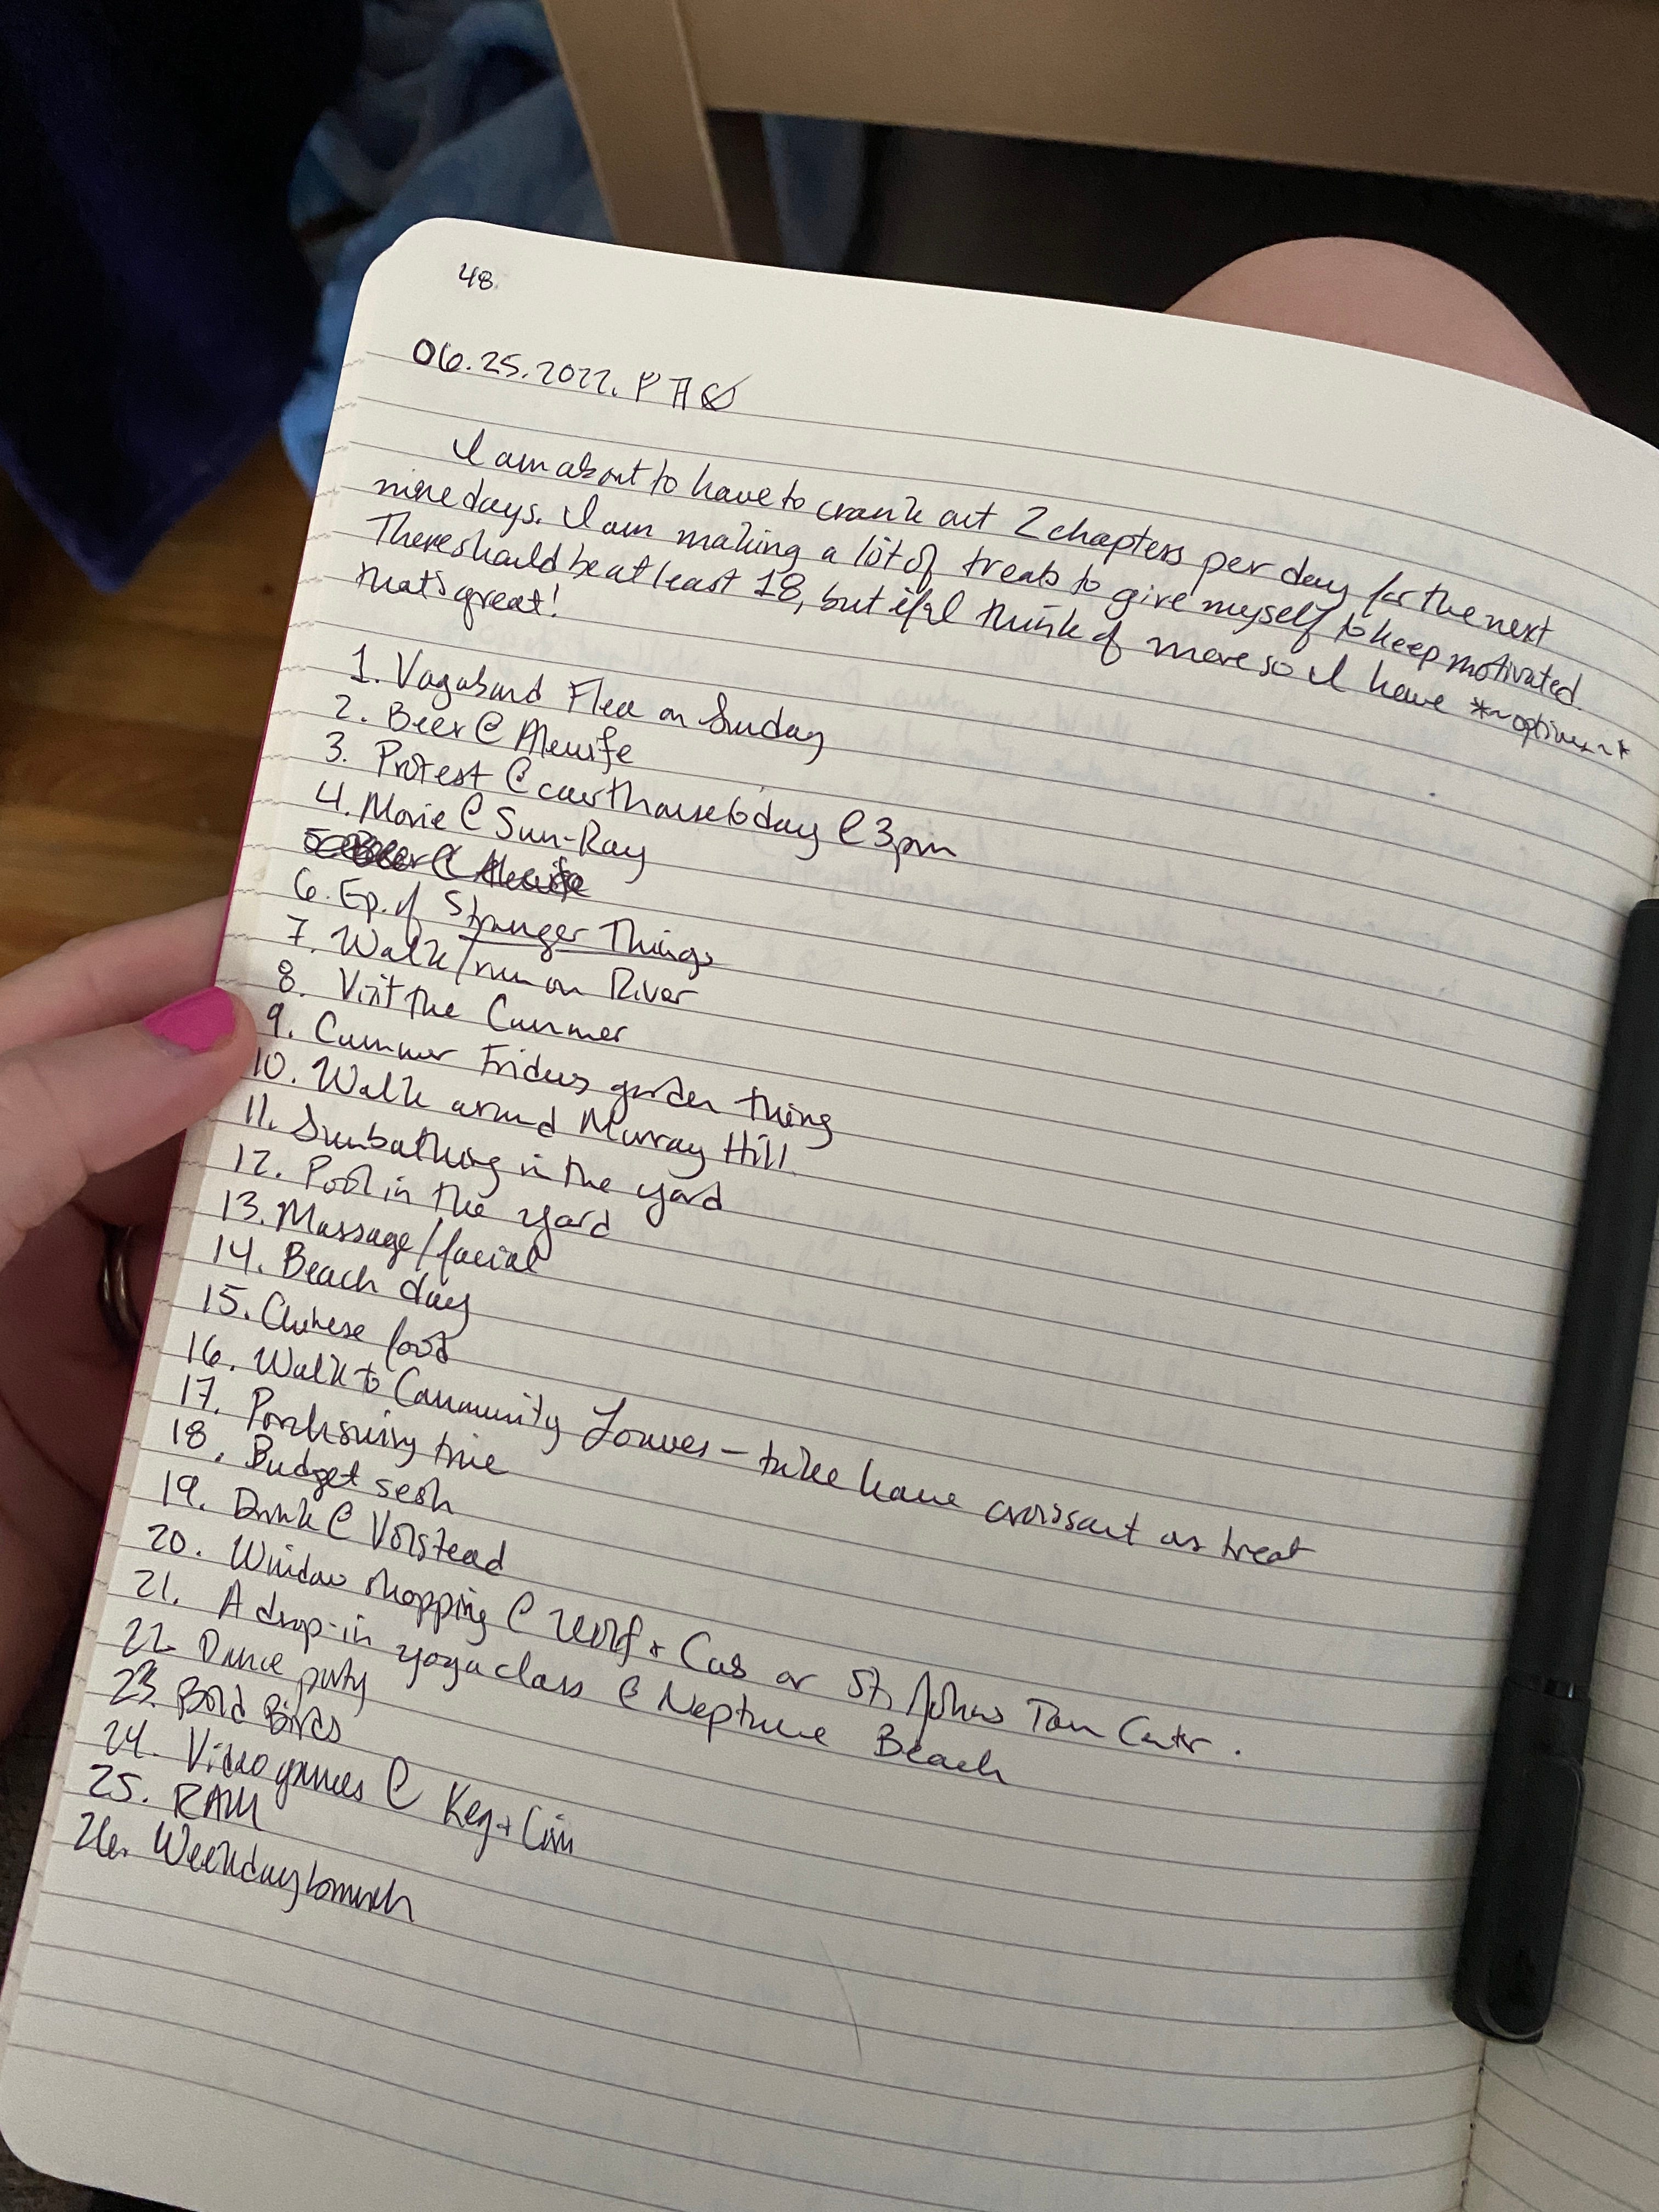 48.
06.25.2022.
I am about to have to crank out 2 chapters per day for the next
nine days. I am making a lot of treats to give myself to keep motivated.
There should be at least 18, but if I think of more so I have *~options~*
that's great!
1. Vagabond Flea on Sunday
2. Beer @ Alewife
3. Protest @ courthouse today @ 3pm
4. Movie @ Sun-Ray
5. Beer @ Alewife
6. Ep. of Stranger Things
7. Walk/run on River
8. Visit the Cummer
9. Cummer Fridays garden thing
10. Walk around Murray Hill
11. Sunbathing in the yard
12. Pool in the yard
13. Massage/facial
14. Beach day
15. Chinese food
16. Walk to Community Loaves - take home croissant as treat
17. Porch swing time
18. Budget sesh
19. Drink @ Volstead
20. Window shopping @ Wolf + Cub or St. Johns Town Center.
21. A drop-in yoga class @ Neptune Beach
22. Dance party
23. Bold Birds
24. Video games @ Keg + Coin
25. RAM
26. Weekday brunch